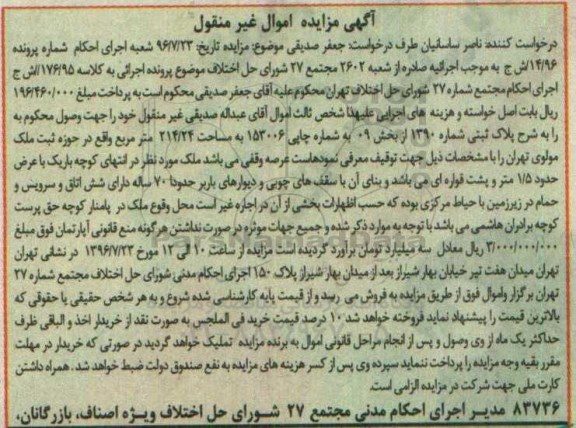 آگهی مزایده اموال غیر منقول
درخواست کننده: ناصر ساسانیان طرف درخواست: جعفر صدیقی موضوع: مزایده تاریخ: ۹۶/۷/۲۳ شعبه اجرای احکام شماره پرونده
۱۴/۹۶/ش ج به موجب اجرائیه صادره از شعبه ۲۶۰۲ مجتمع ۲۷ شورای حل اختلاف موضوع پرونده اجرائی به کلاسه ۱۷۶/۹۵/ش ج
اجرای احکام مجتمع شماره ۲۷ شورای حل اختلاف تهران محکوم علیه آقای جعفر صدیقی محکوم است به پرداخت مبلغ ۱۹۶/۴۶۰/۰۰۰
ریال بابت اصل خواسته و هزینه های اجرایی علیهذا شخص ثالث اموال آقای عبداله صدیقی غیر منقول خود را جهت وصول محکوم به
را به شرح پلاک ثبتی شماره ۱۳۹۰ از بخش ۰۹ به شماره چاپی ۱۵۳۰۰۶ به مساحت ۲۱۴/۲۴ متر مربع واقع در حوزه ثبت ملک
مولوی تهران را با مشخصات ذیل جهت توقیف معرفی نمودهاست عرصه وقفی می باشد ملک مورد نظر در انتهای کوچه باریک با عرض
حدود ۱/۵ متر و پشت قواره ای می باشد و بنای آن با سقف های چوبی و دیوارهای باربر حدودا ۷۰ ساله دارای شش اتاق و سرویس و
حمام در زیرزمین با حیاط مرکزی بوده که حسب اظهارات بخشی از آن در اجاره غیر است محل وقوع ملک در پامنار کوچه حق پرست
کوچه برادران هاشمی می باشد با توجه به موارد ذکر شده و جمیع جهات موثره در صورت نداشتن هرگونه منع قانونی آپارتمان فوق مبلغ
۳/۰۰۰/۰۰۰/۰۰۰ ریال معادل سه میلیارد تومان برآورد گردیده است مزایده از ساعت ۱۰ الی ۱۲ مورخ ۱۳۹۶/۷/۲۳ در نشانی تهران
تهران میدان هفت تیر خیابان بهار شیراز بعد از میدان بهار شیراز پلاک ۱۵۰ اجرای احکام مدنی شورای حل اختلاف مجتمع شماره ۲۷
تهران برگزار واموال فوق از طریق مزایده به فروش می رسد و از قیمت پایه کارشناسی شده شروع و به هر شخص حقیقی یا حقوقی که
بالاترین قیمت را پیشنهاد نماید فروخته خواهد شد ۱۰ درصد قیمت خرید فی المجلس به صورت نقد از خریدار اخذ و الباقی ظرف
حداکثر یک ماه از وی وصول و پس از انجام مراحل قانونی اموال به برنده مزایده تملیک خواهد گردید در صورتی که خریدار در مهلت
مقرر بقیه وجه مزایده را پرداخت ننماید سپرده وی پس از کسر هزینه های مزایده به نفع صندوق دولت ضبط خواهد شد. همراه داشتن
کارت ملی جهت شرکت در مزایده الزامی است.
۸۳۷۳۶ مدیر اجرای احکام مدنی مجتمع ۲۷ شورای حل اختلاف ویژه اصناف، بازرگانان،